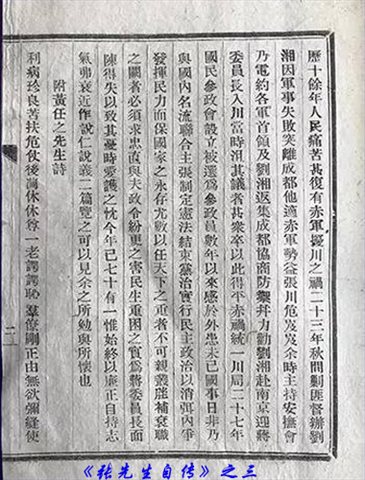 歷十餘年人民痛苦甚復有赤軍擾川之禍二十三年秋間剿匪督辦劉
湘因軍事失敗突離成都他適赤軍勢益張川危岌岌余時主持安撫會
乃電約各軍首領及劉湘返集成都協商防禦并力勸劉湘赴南京迎蔣
委員長入川當時沮其議者甚衆卒以此得平赤禍統一川局二十七年
國民參政會設立被選爲參政員數年以來感於外患未已國事日非乃
與國內名流聯合主張制定憲法結束黨治實行民主政治以消弭內爭
發揮民力而保國家之永存尤數以任天下之重者不可親叢脞補袞職
之闕者必須求忠直與夫政令紛更之害民生重困之實爲蔣委員長面
陳得失以致其憂時愛護之忱今年已七十有一惟始終以廉正自持志
氣弗衰近作說仁說義二篇覽之可以見余之所勉與所懷也
附黃任之先生詩
利病珍良苦扶危仗後凋休休尊一老諤諤恥羣僚剛正由無欲彌縫使
二
《張先生自傳》之三